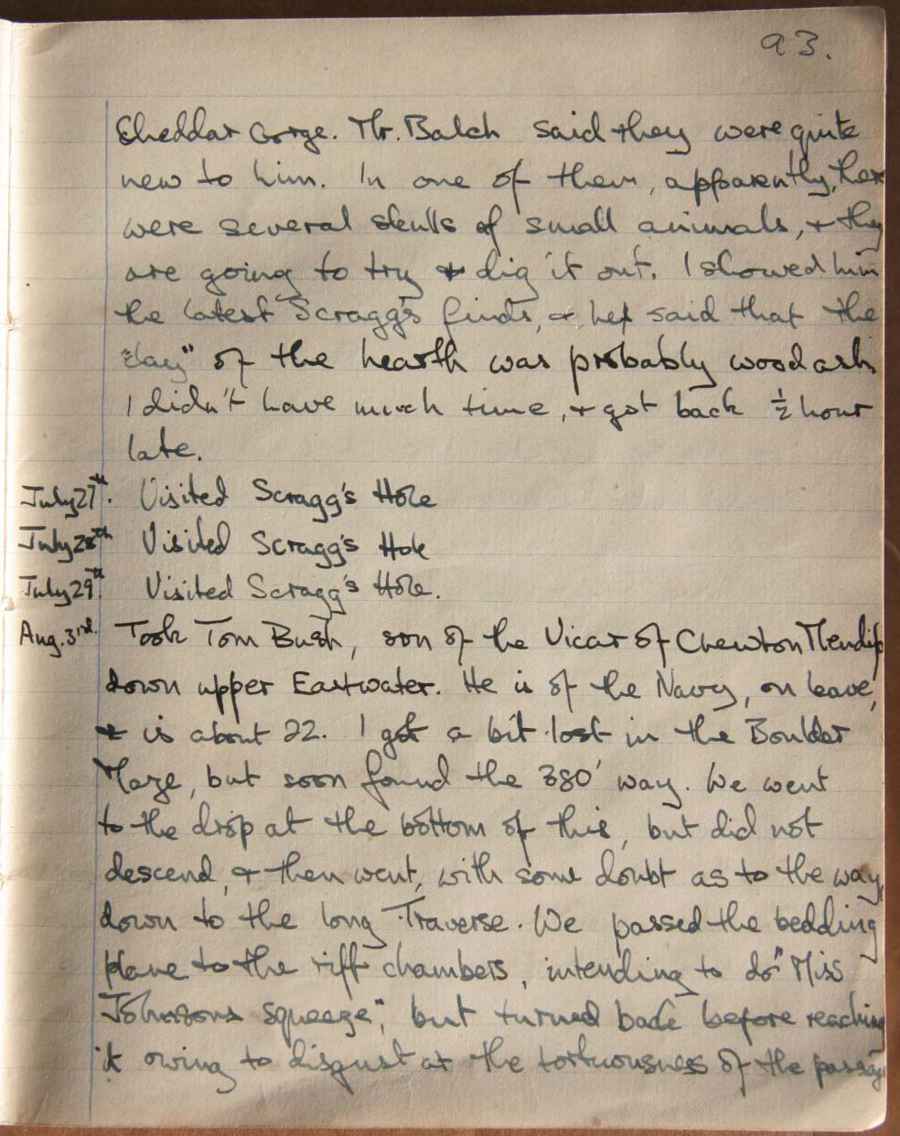 93.
Cheddar Gorge. Mr. Balch said they were quite
new to him. In one of them, apparently, there
were several skulls of small animals, & they
are going to try & dig it out. I showed him
the latest Scragg's finds, & he said that the
"clay" of the hearth was probably wood ash
I didn't have much time, & got back ½ hour
late.
July 27th. Visited Scragg's Hole
July 28th Visited Scragg's Hole
July 29th. Visited Scragg's Hole.
Aug. 3rd. Took Tom Bush, son of the Vicar of Chewton Mendip
down upper Eastwater. He is of the Navy, on leave,
& is about 22. I got a bit lost in the Boulder
Maze, but soon found the 380' way. We went
to the drop at the bottom of this, but did not
descend, & then went, with some doubt as to the way,
down to the long Traverse. We passed the bedding
plane to the riff chambers, intending to do "Miss
Johnsons squeeze", but turned back before reaching
it owing to disgust at the tortuousness of the passage